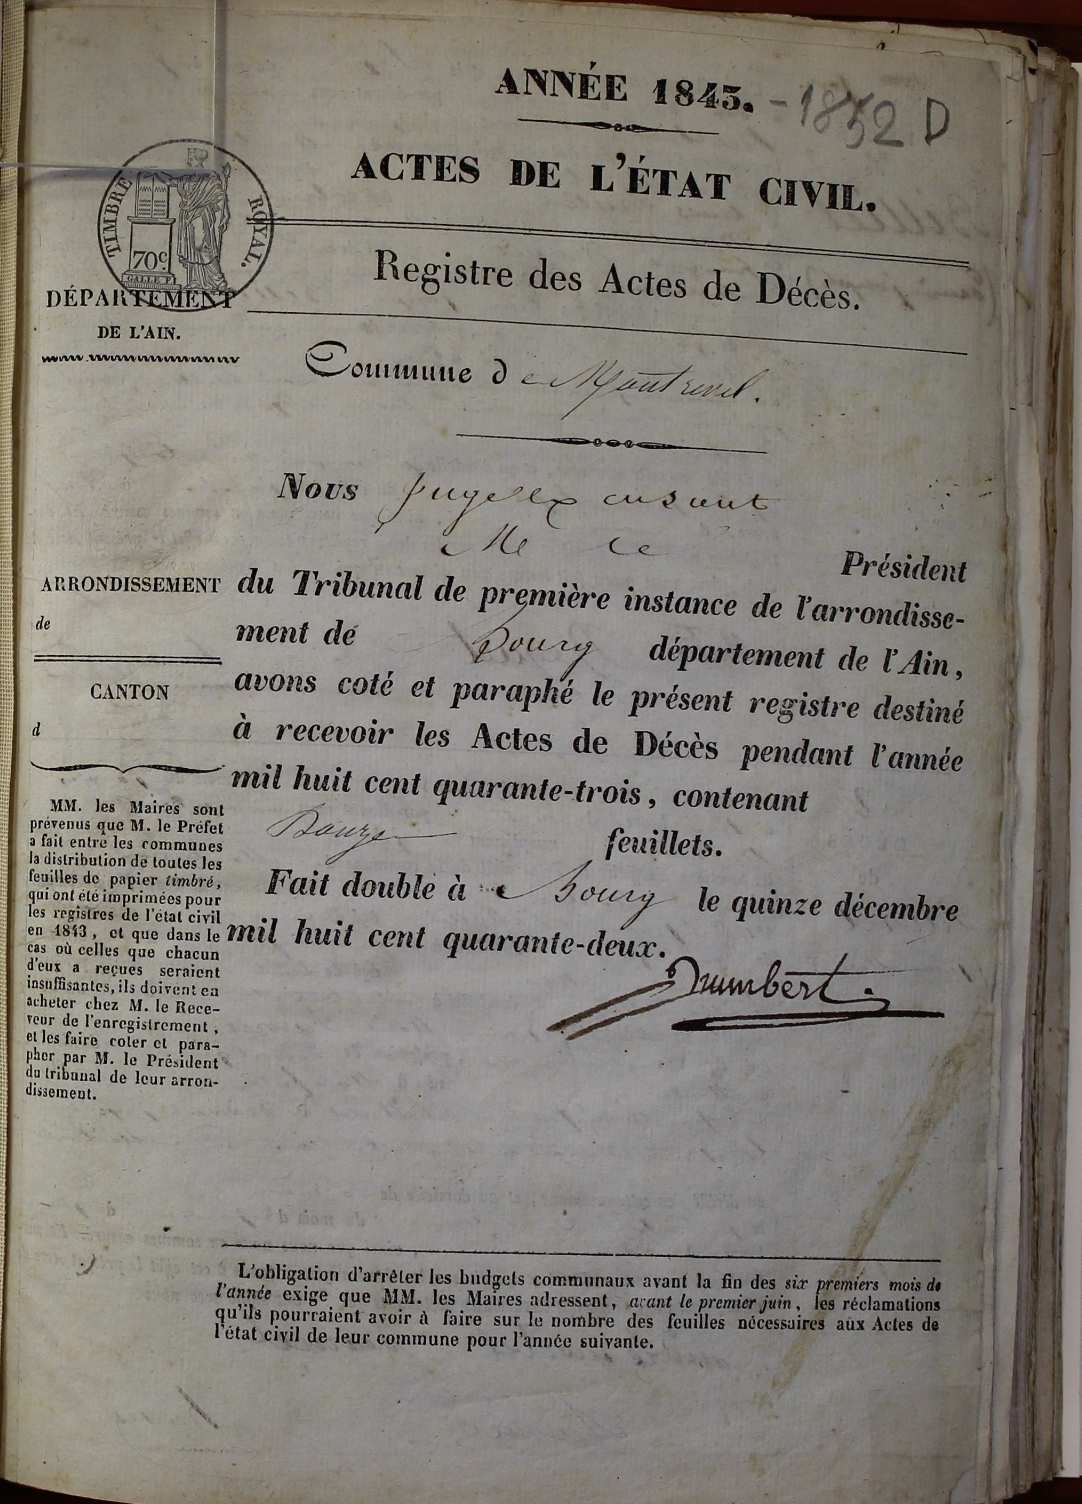 ANNÉE 1843. - 1852 D
ACTES DE L'ÉTAT CIVIL.
TIMBRE ROYAL.
70c
Registre des Actes de Décès.
DÉPARTEMENT
DE L'AIN.
Commune de Montrevel.
Nous Juge
Me le
Président
ARRONDISSEMENT
de
CANTON
d
du Tribunal de première instance de l'arrondisse-
ment de Bourg département de l'Ain,
avons coté et paraphé le présent registre destiné
à recevoir les Actes de Décès pendant l'année
mil huit cent quarante-trois, contenant
feuillets.
Fait double à Bourg le quinze décembre
mil huit cent quarante-deux.
MM. les Maires sont
prévenus que M. le Préfet
a fait entre les communes
la distribution de toutes les
feuilles de papier timbré,
qui ont été imprimées pour
les registres de l'état civil
en 1843, et que dans le
cas où celles que chacun
d'eux a reçues seraient
insuffisantes, ils doivent en
acheter chez M. le Rece-
veur de l'enregistrement,
et les faire coter et para-
pher par M. le Président
du tribunal de leur arron-
dissement.
L'obligation d'arrêter les budgets communaux avant la fin des six premiers mois de
l'année exige que MM. les Maires adressent, avant le premier juin, les réclamations
qu'ils pourraient avoir à faire sur le nombre des feuilles nécessaires aux Actes de
l'état civil de leur commune pour l'année suivante.